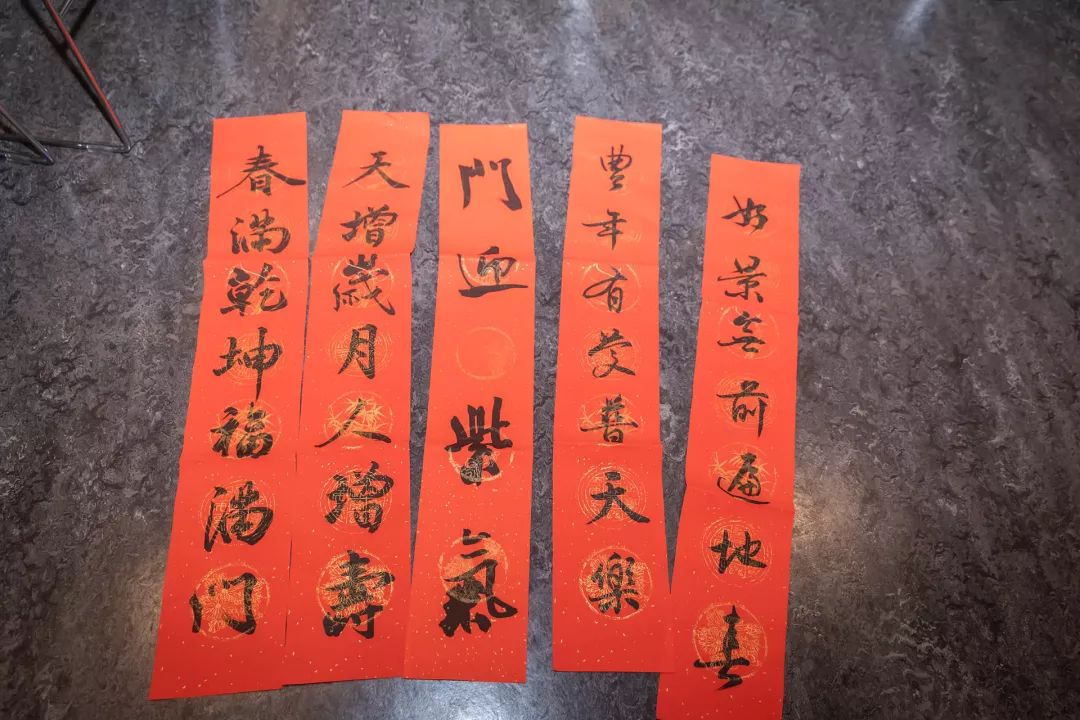 好景無前遍地春
豐年有慶普天樂
門迎紫氣
天增歲月人增壽
春滿乾坤福滿門